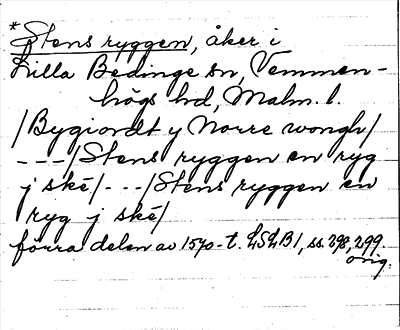 *
Stens ryggen, åker i
Lilla Bedinge sn, Vemmen-
högs hd, Malm. l.
/Bygiordt y Norre wongh/
---/Stens ryggen en ryg
j ské/---/Stens ryggen en
ryg j ské/
förra delen av 1570-t. LSLB1, ss. 298, 299.
orig.